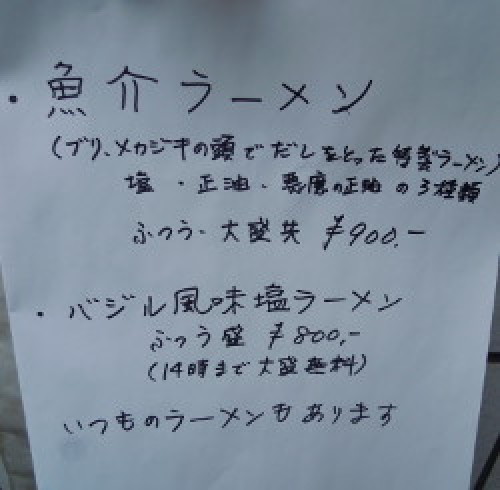 ・魚介ラーメン
(ブリ、メカジキの頭でだしをとった特製ラーメン)
塩・正油・悪魔の正油の3種類
ふつう・大盛共 ¥900.-
・バジル風味塩ラーメン
ふつう盛 ¥800.-
(14時まで大盛無料)
いつものラーメンもあります